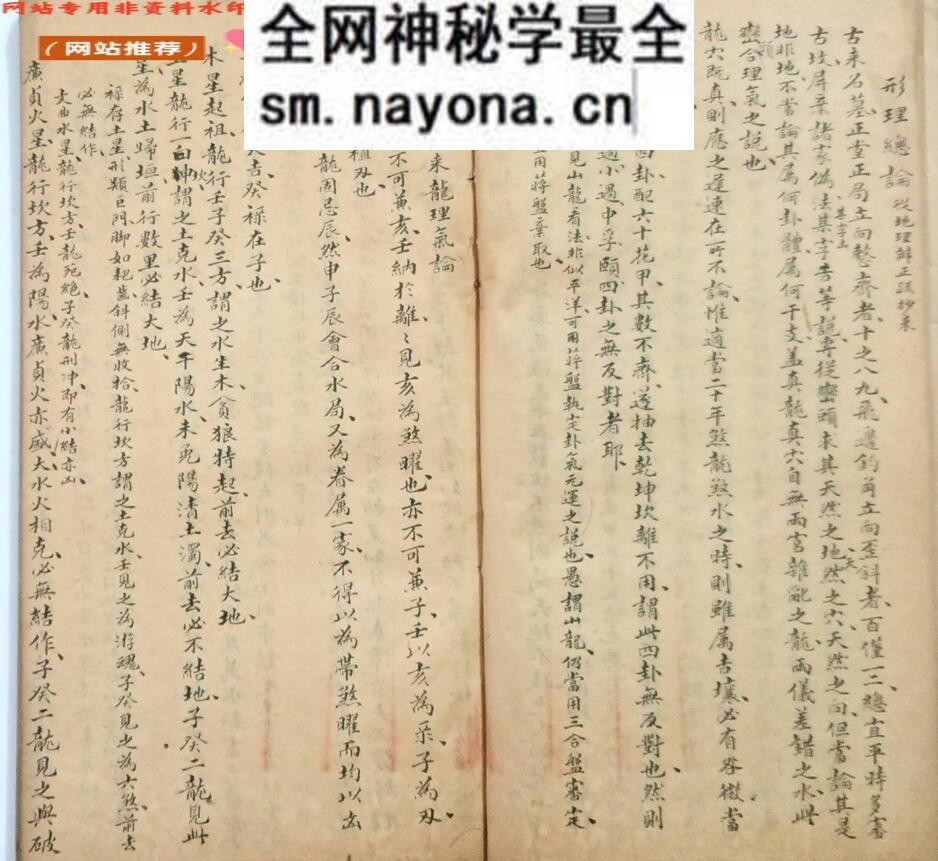 网站专用非资料水印
（网站推荐）
全网神秘学最全
sm.nayona.cn
形理總論 從地理辨正疏抄来
古来名墓正堂正局立向整齊者十之八九飛邊釣角立向歪斜者百僅一二總宜平時多審
古坟屏棄諸家偽法某字吉某字凶等説專從巒頭求其天然之地天然之穴天然之向但當論其是
地非地不當論其属何卦體属何干支盖真龍真穴自無兩宫雜亂之龍兩儀差錯之水此
巒頭合理氣之説也
龍穴既真則應之遲速在所不論惟適當二十年煞龍煞水之時則雖属吉壤必有咎徵當
四卦配六十花甲其數不齊遂抽去乾坤坎離不用謂此四卦無反對也然則
過小過中孚頤四卦之無反對者耶
見山龍看法非似平洋可用蒋盤執定卦氣元運之説也愚謂山龍仍當用三合盤審定
用蒋盤棄取也
来龍理氣論
不可兼亥壬納於離離見亥為煞曜也亦不可兼子壬以亥為禄子為刃
植刃也
龍固忌辰然申子辰會合水局又為眷属一家不得以為帶煞曜而均以凶
大吉癸禄在子也
木星起祖龍行壬子癸三方謂之水生木貪狼特起前去必結大地
土星龍行坎謂之土克水壬為天干陽水未免陽清土濁前去必不結地子癸二龍見此
星為水土歸垣前行數里必結大地
禄存土星形類巨門脚如耙齒斜側無收拾龍行坎方謂之土克水壬見之為游魂子癸見之為六煞前去
必無結作
文曲水星龍行坎方壬龍死絶子癸龍刑冲即有小結亦凶
廉貞火星龍行坎方壬為陽水廉貞火亦盛大水火相克必無結作子癸二龍見之與破